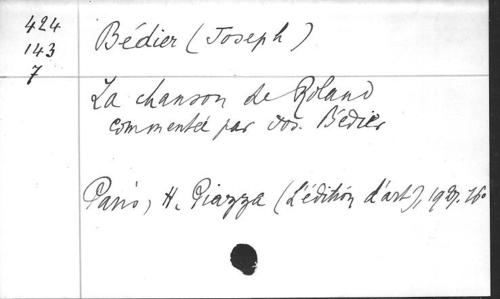 424
143
7
Bédier (Joseph)
La chanson de Roland
commentée par Jos. Bédier
Paris, H. Piazza (L'édition d'art), 1927. 16°